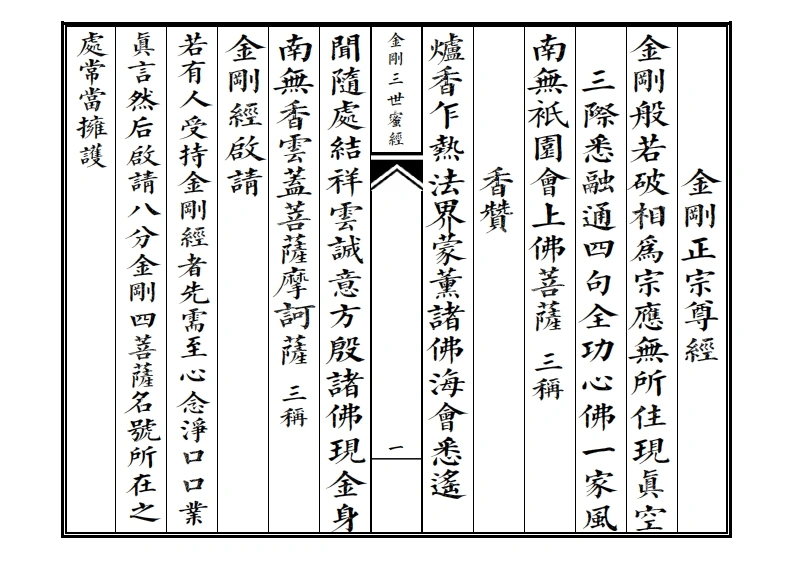 金剛正宗尊經
金剛般若破相為宗應無所住現眞空
三際悉融通四句全功心佛一家風
南無祇園會上佛菩薩 三稱
香贊
爐香乍熱法界蒙薰諸佛海會悉遙
金剛三世蜜經
一
聞隨處結祥雲誠意方殷諸佛現金身
南無香雲蓋菩薩摩訶薩 三稱
金剛經啟請
若有人受持金剛經者先需至心念淨口口業
眞言然后啟請八分金剛四菩薩名號所在之
處常當擁護